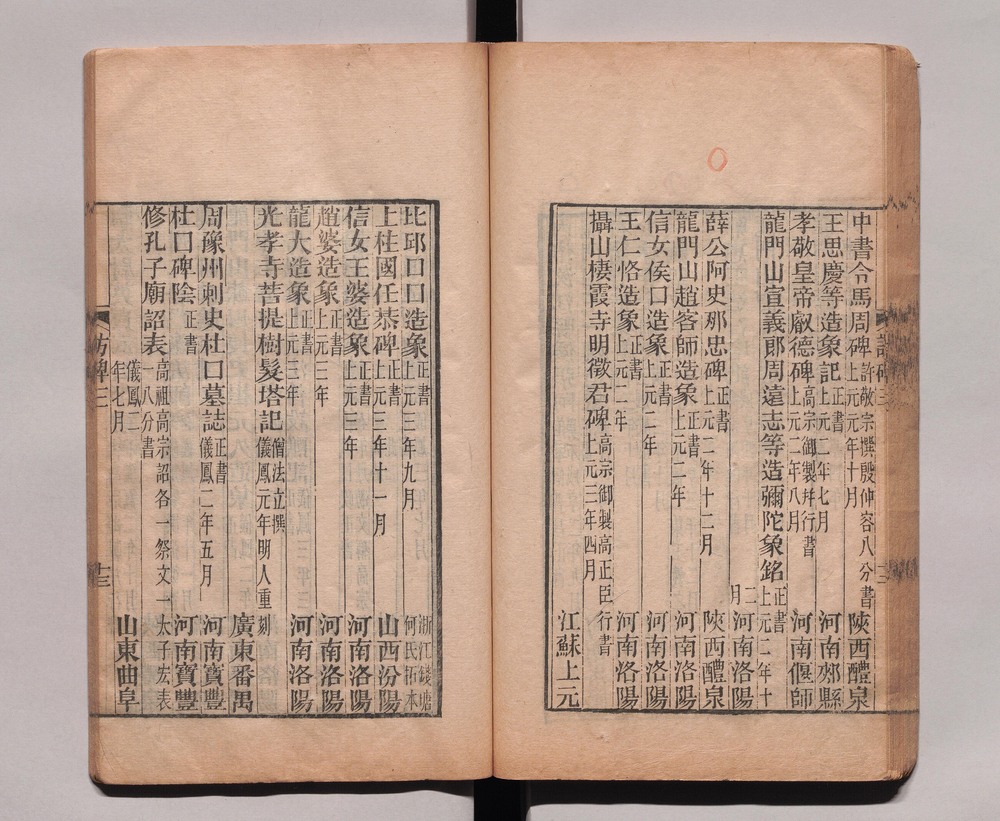 中書令馬周碑許敬宗撰殷仲容八分書上元元年十月陝西醴泉
王思慶等造象記正書上元二年七月河南郟縣
孝敬皇帝叡德碑高宗御製幷行書上元二年八月河南偃師
龍門山宣義郎周遠志等造彌陀象銘正書上元二年十
二月河南洛陽
薛公阿史那忠碑正書上元二年十二月陝西醴泉
龍門山趙客師造象正書上元二年河南洛陽
信女侯口造象正書上元二年河南洛陽
王仁恪造象正書上元二年河南洛陽
攝山棲霞寺明徵君碑高宗御製高正臣行書上元三年四月江蘇上元
比邱口口造象正書上元三年九月浙江錢塘何氏拓本
上柱國任恭碑正書上元三年十一月山西汾陽
信女王婆造象正書上元三年河南洛陽
趙婆造象正書上元三年河南洛陽
龍大造象正書上元三年河南洛陽
光孝寺菩提樹髮塔記僧法立撰儀鳳元年明人重刻廣東番禺
周豫州刺史杜口墓誌正書儀鳳二年五月河南寶豐
杜口碑陰正書河南寶豐
修孔子廟詔表高祖高宗詔各一祭文一太子宏表一八分書
儀鳳二年七月山東曲阜
訪碑三
十三